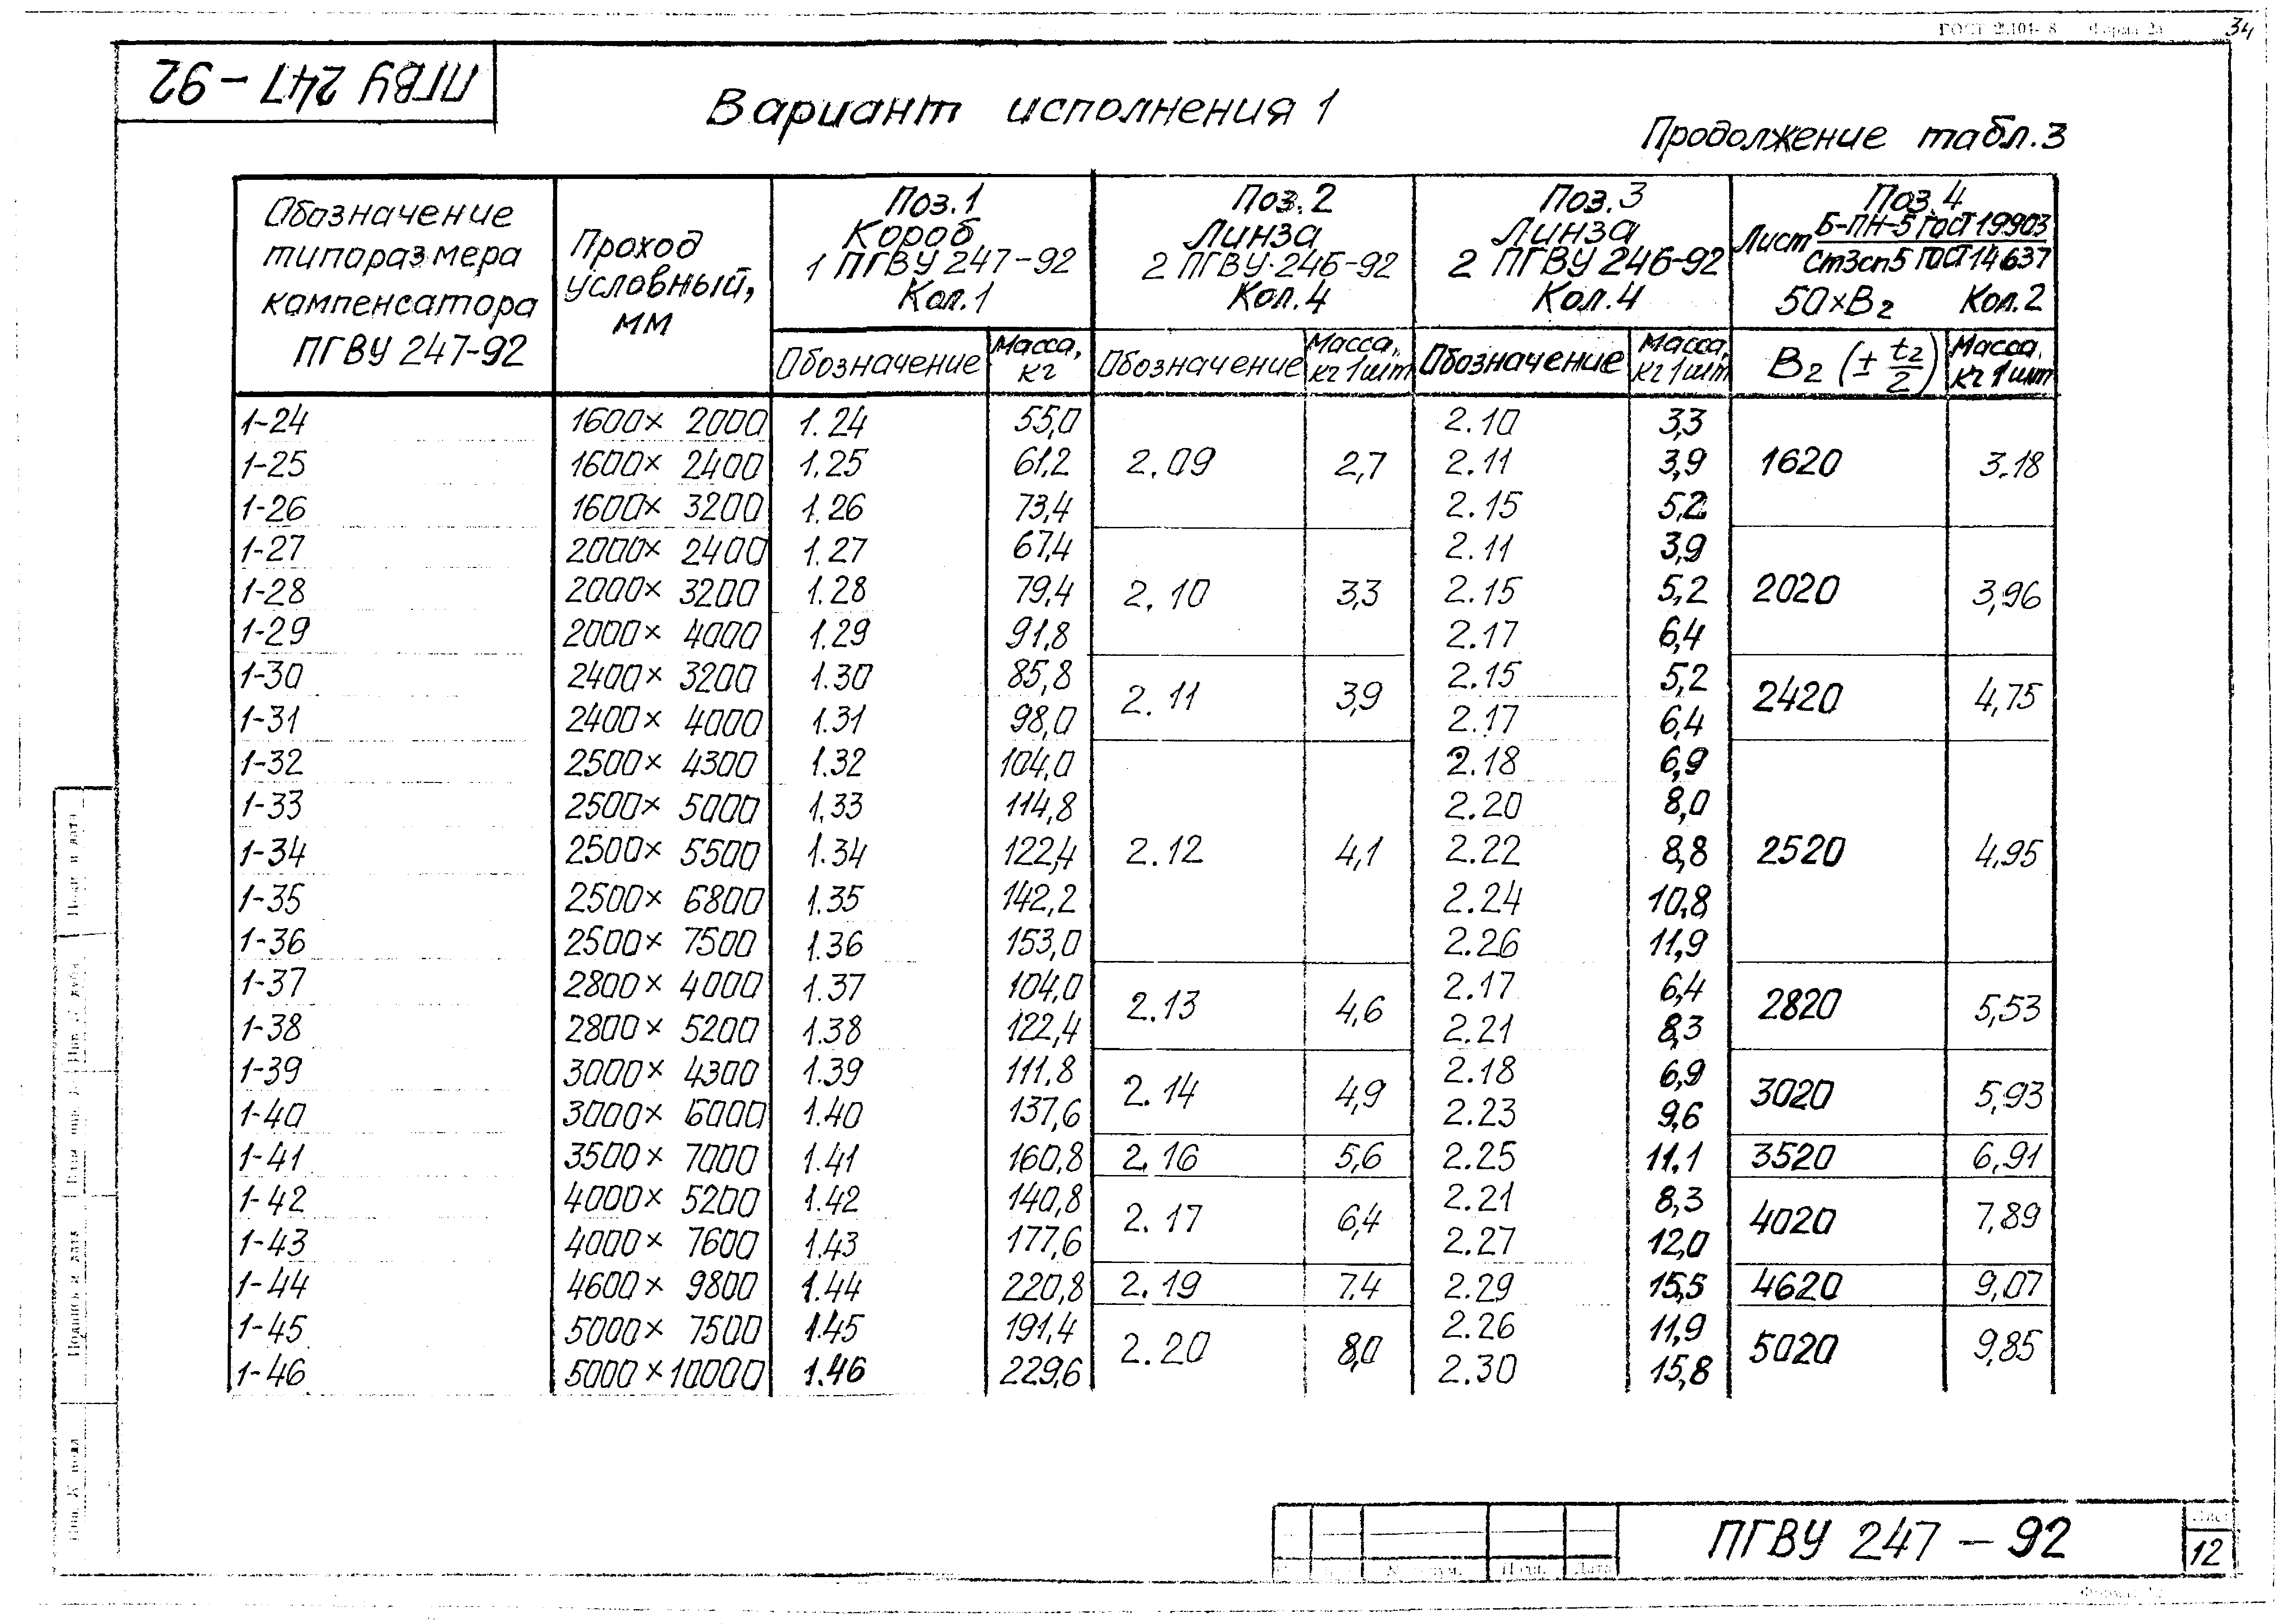 34
ПГВУ 247-92
Вариант исполнения 1
Продолжение табл.3
Обозначение типоразмера компенсатора ПГВУ 247-92
Проход условный, мм
Поз.1 Короб 1 ПГВУ 247-92 Кол.1
Поз.2 Линза 2 ПГВУ 246-92 Кол.4
Поз.3 Линза 2 ПГВУ 246-92 Кол.4
Поз.4 Лист Б-ПН-5 ГОСТ 19903 Ст3сп5 ГОСТ 14637 50×В2 Кол.2
Обозначение Масса, кг Обозначение Масса, кг 1шт Обозначение Масса, кг 1шт В2 (± t2/2) Масса, кг 1шт
1-24 1600× 2000 1.24 55,0 2.10 3,3
1-25 1600× 2400 1.25 61,2 2.09 2,7 2.11 3,9 1620 3.18
1-26 1600× 3200 1.26 73,4 2.15 5,2
1-27 2000× 2400 1.27 67,4 2.11 3,9
1-28 2000× 3200 1.28 79,4 2.10 3,3 2.15 5,2 2020 3,96
1-29 2000× 4000 1.29 91,8 2.17 6,4
1-30 2400× 3200 1.30 85,8 2.11 3,9 2.15 5,2 2420 4,75
1-31 2400× 4000 1.31 98,0 2.17 6,4
1-32 2500× 4300 1.32 104,0 2.18 6,9
1-33 2500× 5000 1,33 114,8 2.20 8,0
1-34 2500× 5500 1.34 122,4 2.12 4,1 2.22 8,8 2520 4,95
1-35 2500× 6800 1.35 142,2 2.24 10,8
1-36 2500× 7500 1.36 153,0 2.26 11,9
1-37 2800× 4000 1.37 104,0 2.13 4,6 2.17 6,4 2820 5,53
1-38 2800× 5200 1.38 122,4 2.21 8,3
1-39 3000× 4300 1.39 111,8 2.14 4,9 2.18 6,9 3020 5,93
1-40 3000× 6000 1.40 137,6 2.23 9,6
1-41 3500× 7000 1.41 160,8 2.16 5,6 2.25 11,1 3520 6,91
1-42 4000× 5200 1.42 140,8 2.17 6,4 2.21 8,3 4020 7,89
1-43 4000× 7600 1.43 177,6 2.27 12,0
1-44 4600× 9800 1.44 220,8 2.19 7.4 2.29 15,5 4620 9,07
1-45 5000× 7500 1.45 191,4 2.20 8,0 2.26 11,9 5020 9,85
1-46 5000×10000 1.46 229,6 2.30 15,8
Подпись и дата
ПГВУ 247-92
12